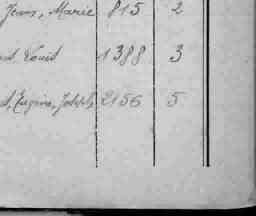 Jean, Marie 815 2
Louis 1388 3
Eugène, Joseph 2156 5